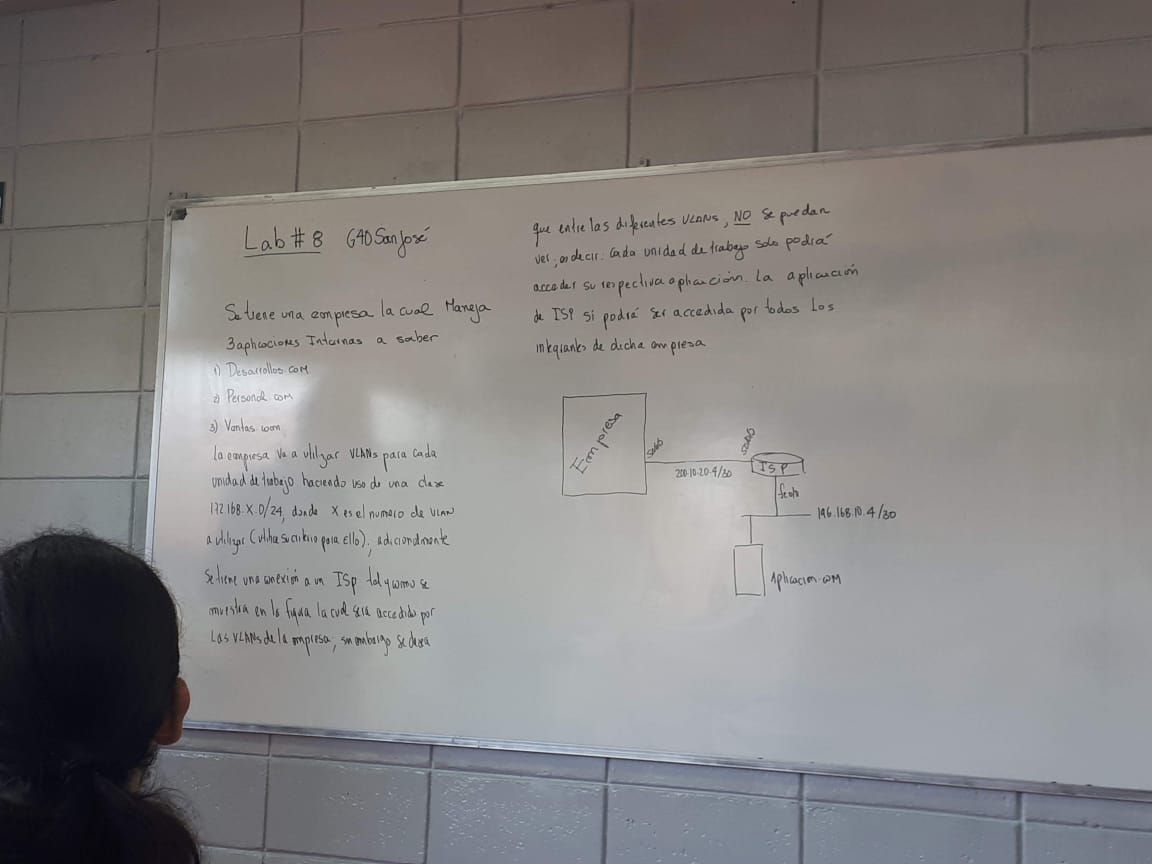 Lab # 8 G40 San José
Se tiene una empresa la cual Maneja
3 aplicaciones Internas a saber
1) Desarrollos.com
2) Personal.com
3) Ventas.com
La empresa va a utilizar VLANs para cada
unidad de trabajo haciendo uso de una clase
192.168.X.0/24, donde X es el numero de VLAN
a utilizar (utilice su criterio para Ello); adicionalmente
Se tiene una conexión a un ISP tal y como se
muestra en la figura la cual será accedido por
Las VLANs de la empresa; sin embargo se desea
que entre las diferentes VLANs, NO se puedan
ver, es decir: cada unidad de trabajo solo podrá
acceder su respectiva aplicación. La aplicación
de ISP si podrá ser accedida por todos Los
integrantes de dicha empresa
Empresa
200.10.20.4/30
ISP
196.168.10.4/30
Aplicacion.com